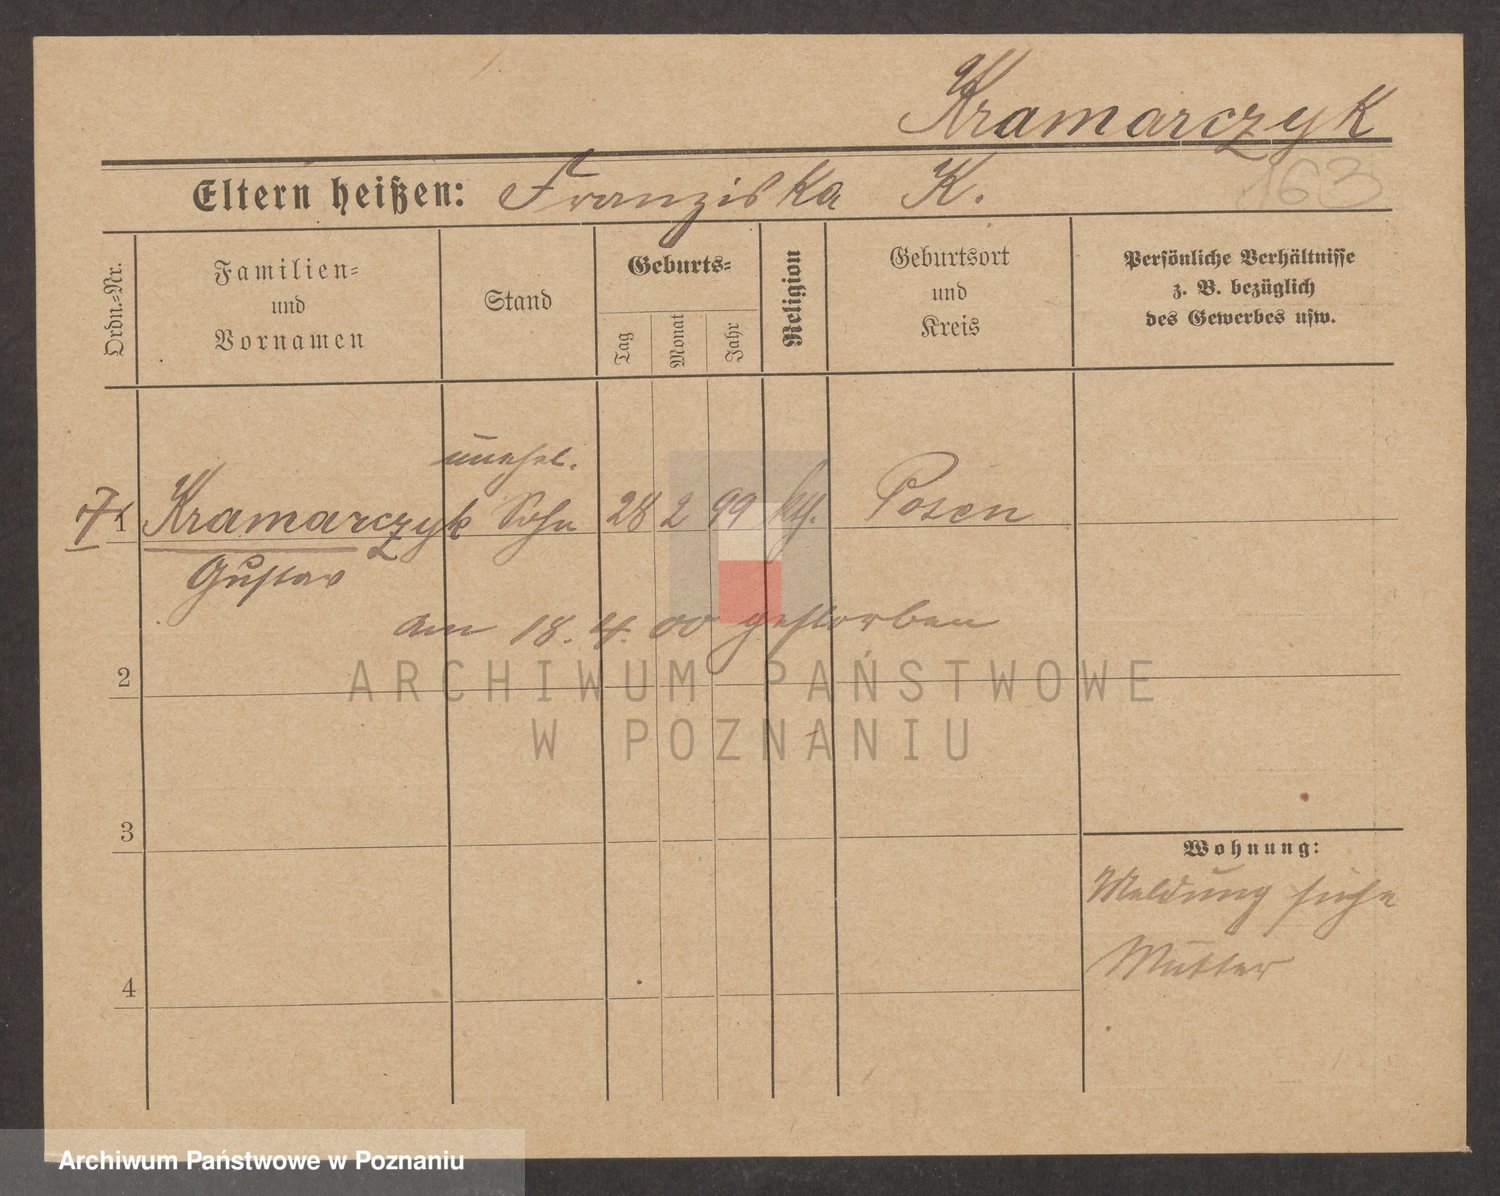 Kramarczyk
163
Eltern heißen: Franziska K.
Ordn.=Nr.
Familien=
und
Vornamen
Stand
Geburts=
Tag
Monat
Jahr
Religion
Geburtsort
und
Kreis
Persönliche Verhältnisse
z. B. bezüglich
des Gewerbes usw.
unehel.
1 Kramarczyk Sohn 28 2 99 kth. Posen
Gustav
am 18. 4. 00 gestorben
2
3
4
Wohnung:
Meldung siehe
Mutter
ARCHIWUM PAŃSTWOWE
W POZNANIU
Archiwum Państwowe w Poznaniu